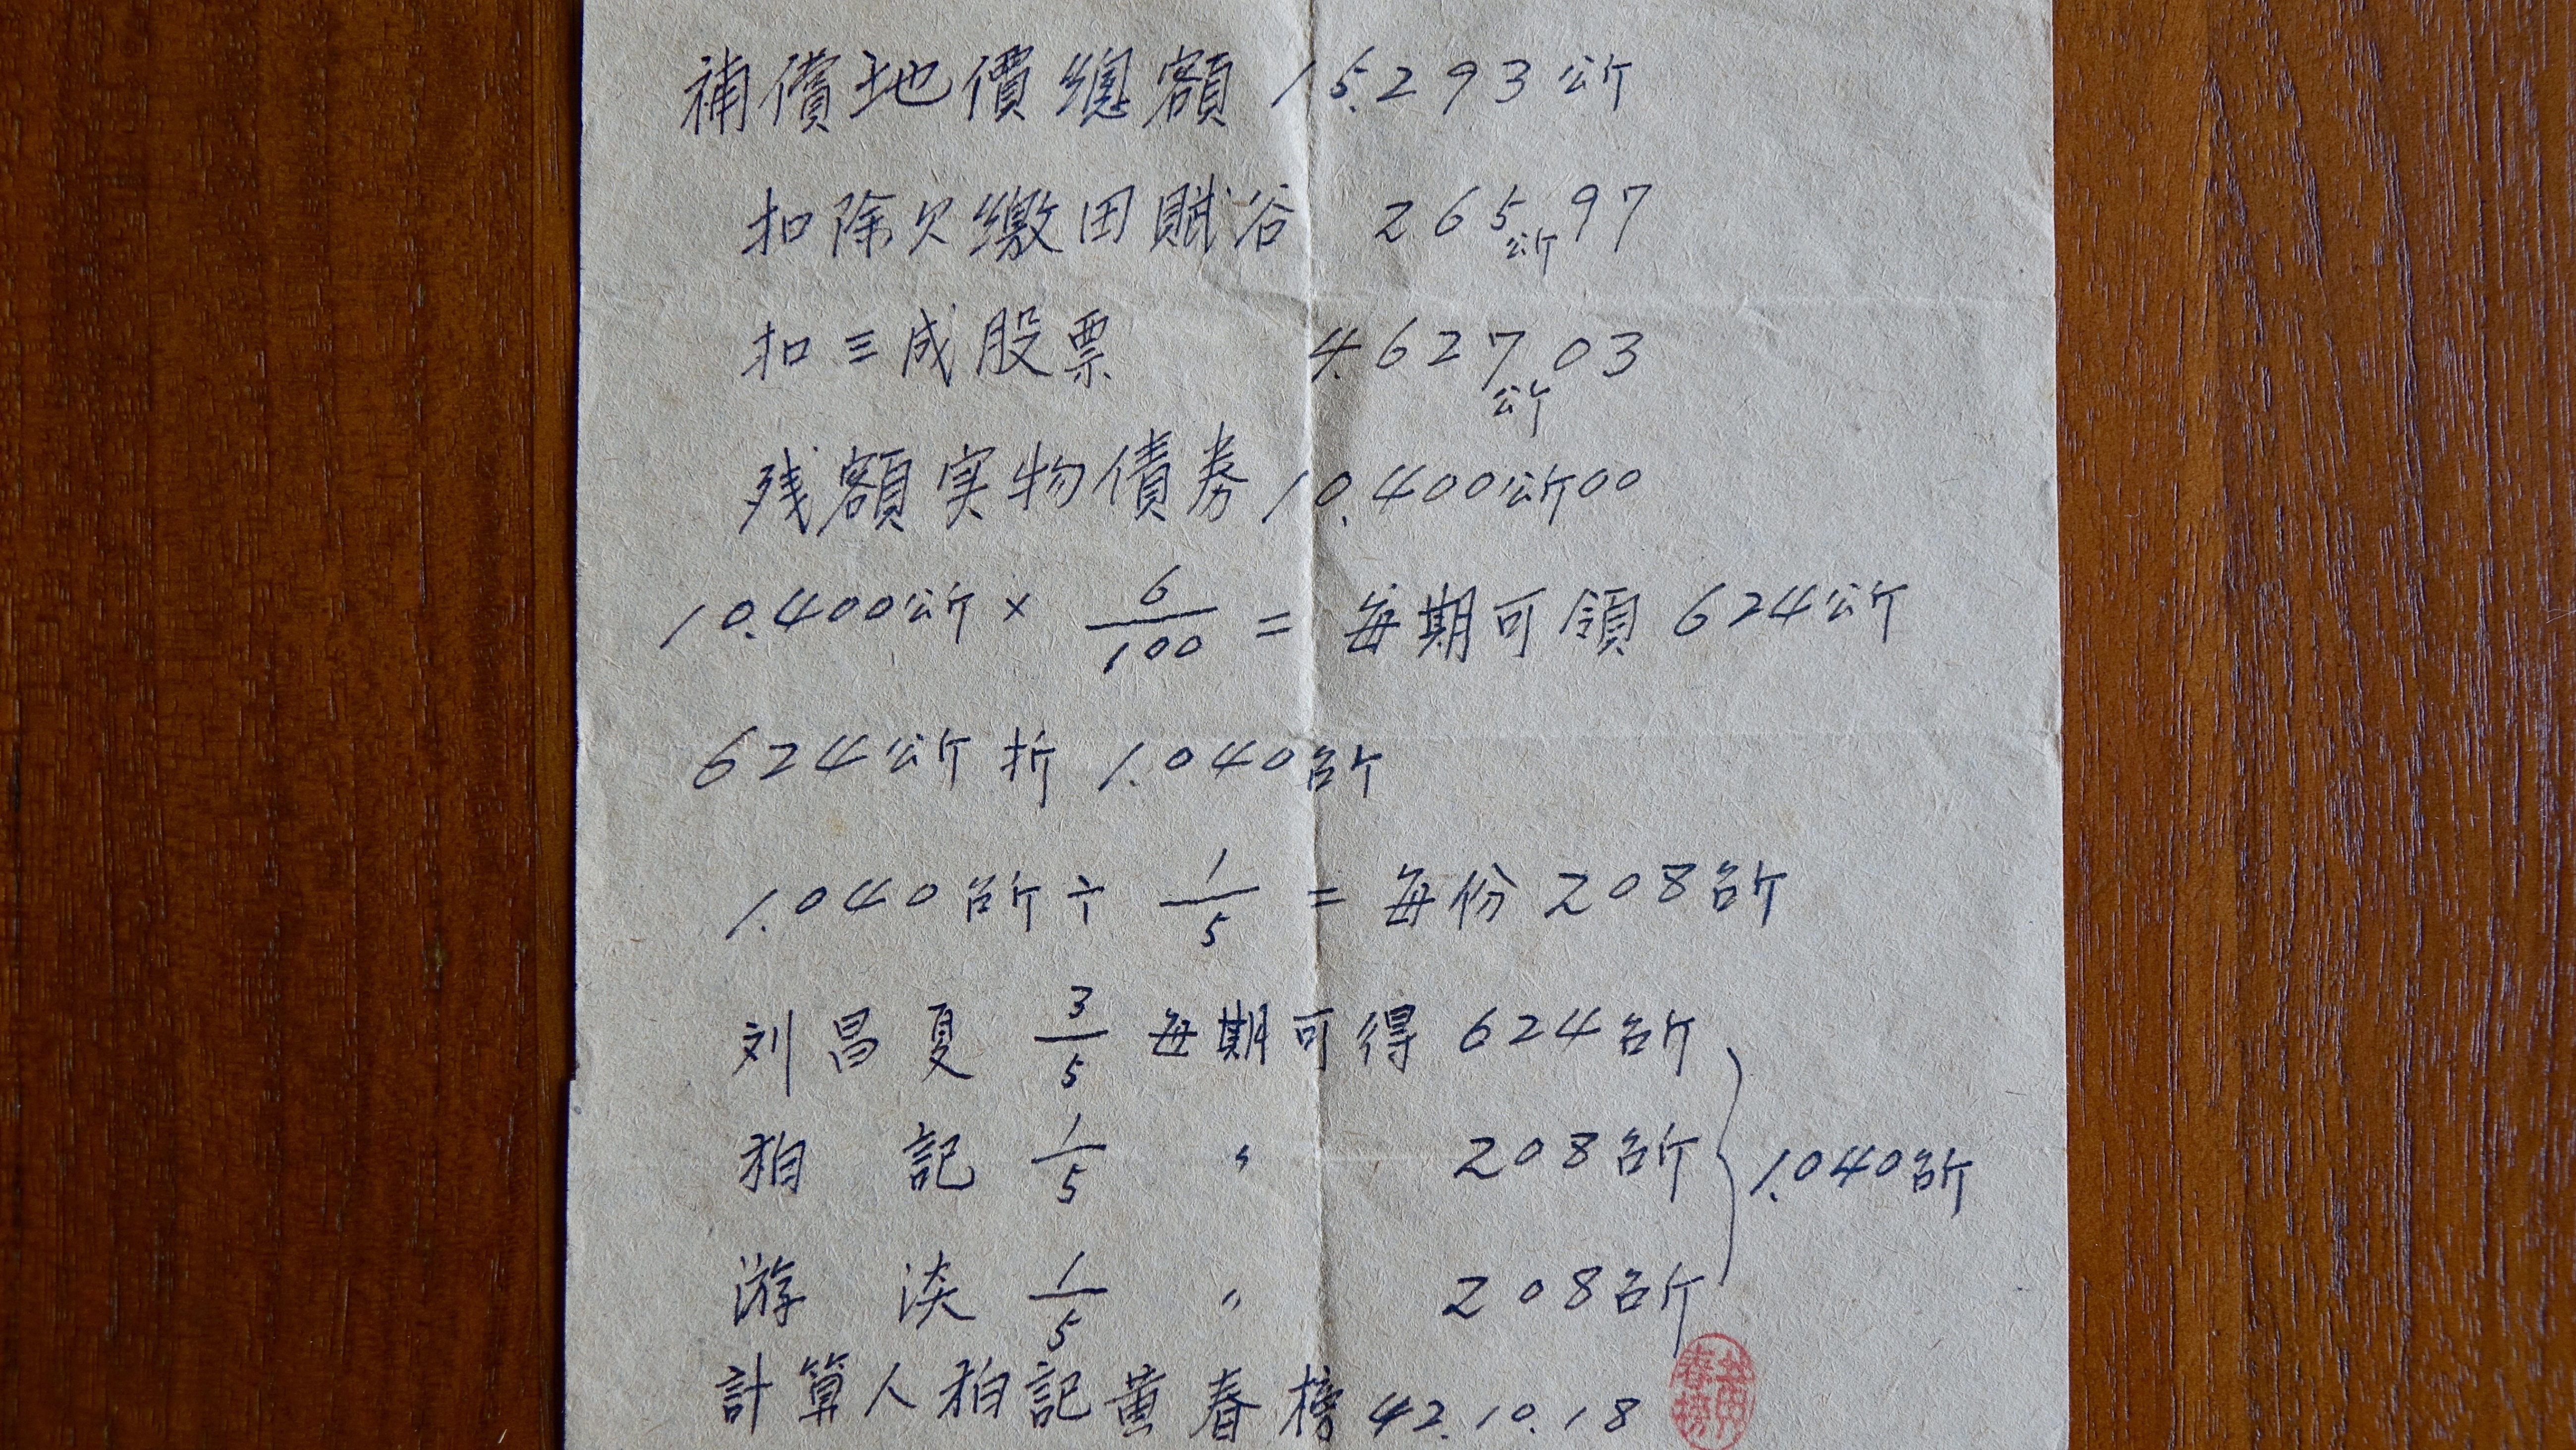 補償地價總額 15.293公斤
扣除欠繳田賦谷 265公斤97
扣三成股票 4.627公斤03
残額実物債券10.400公斤00
10.400公斤 × 6/100 = 每期可領 624公斤
624公斤折 1.040台斤
1.040台斤 ÷ 1/5 = 每份 208台斤
刘昌夏 3/5 每期可得 624台斤
柏記 1/5 〃 208台斤 1.040台斤
游淡 1/5 〃 208台斤
計算人柏記黄春榜 42.10.18